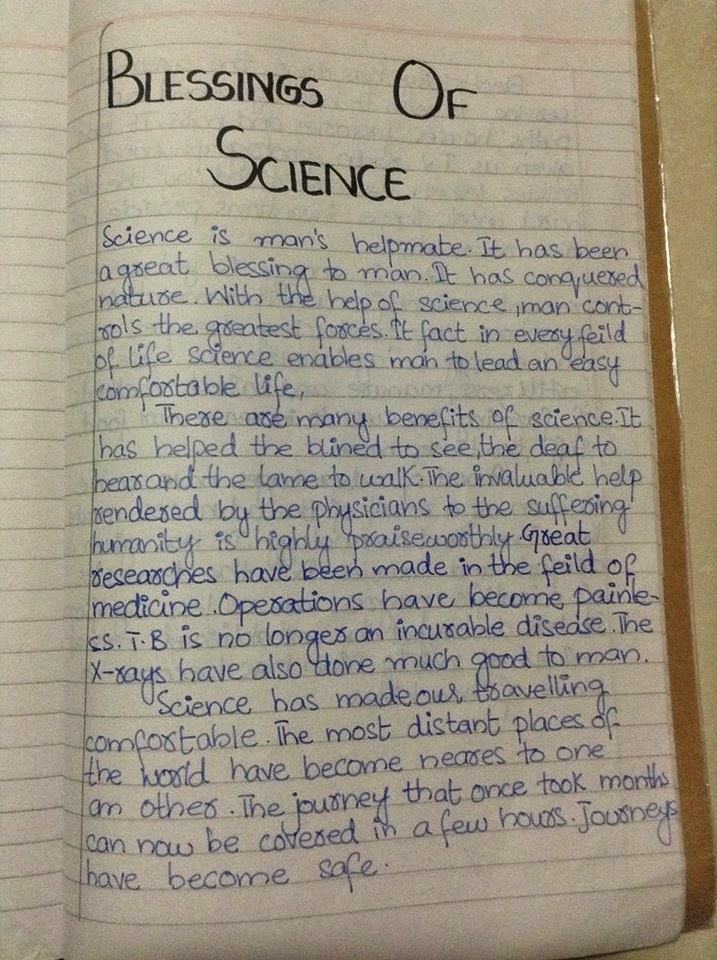 BLESSINGS OF
SCIENCE
Science is man's helpmate. It has been
a great blessing to man. It has conquered
nature. With the help of science, man cont-
rols the greatest forces. It fact in every feild
of life science enables man to lead an easy
comfortable life,
There are many benefits of science. It
has helped the blined to see, the deaf to
hear and the lame to walk. The invaluable help
rendered by the physicians to the suffering
humanity is highly praiseworthly. Great
researches have been made in the feild of
medicine. Operations have become painle-
ss. T.B is no longer an incurable disease. The
X-rays have also done much good to man.
Science has made our travelling
comfortable. The most distant places of
the world have become neares to one
an other. The journey that once took months
can now be covered in a few hours. Journeys
have become safe.